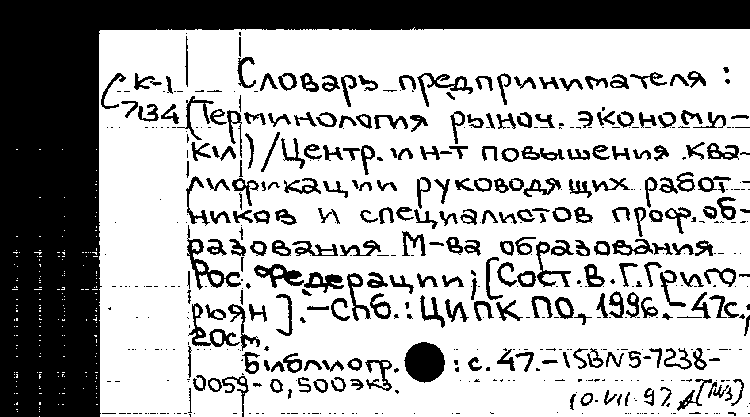 К-1 Словарь предпринимателя :
7134 (Терминология рыноч. экономи-
ки) / Центр. ин-т повышения ква-
лификации руководящих работ-
ников и специалистов проф. об-
разования М-ва образования
Рос. Федерации; [Сост. В. Г. Григо-
рьян]. - Спб.: ЦИПК ПО, 1996. - 47с.;
20см.
Библиогр. : с. 47. - ISBN 5-7238-
0059- 0,500экз.
10.VII.97.